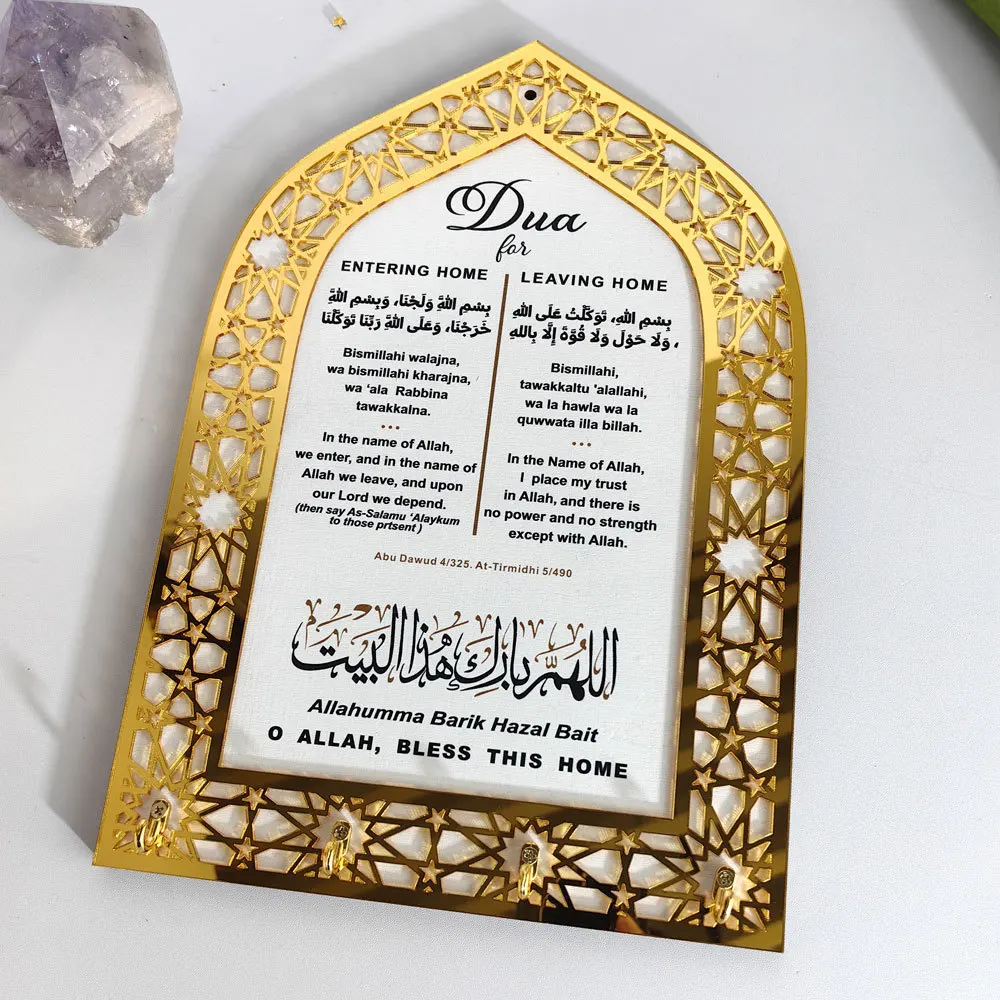 Dua
for
ENTERING HOME
بِسْمِ اللهِ وَلَجْنَا، وَبِسْمِ اللهِ
خَرَجْنَا، وَعَلَى اللهِ رَبِّنَا تَوَكَّلْنَا
Bismillahi walajna,
wa bismillahi kharajna,
wa ‘ala Rabbina
tawakkalna.
In the name of Allah,
we enter, and in the name of
Allah we leave, and upon
our Lord we depend.
(then say As-Salamu ‘Alaykum
to those prtsent )
LEAVING HOME
بِسْمِ اللهِ، تَوَكَّلْتُ عَلَى اللهِ
، وَلَا حَوْلَ وَلَا قُوَّةَ إِلَّا بِاللهِ
Bismillahi,
tawakkaltu 'alallahi,
wa la hawla wa la
quwwata illa billah.
In the Name of Allah,
I place my trust
in Allah, and there is
no power and no strength
except with Allah.
Abu Dawud 4/325. At-Tirmidhi 5/490
اللهم بارك هذا البيت
Allahumma Barik Hazal Bait
O ALLAH, BLESS THIS HOME